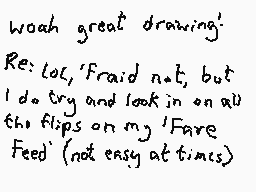 woah great drawing!
Re: Lol, 'Fraid not, but
I do try and look in on all
the flips on my 'Fave
Feed' (not easy at times)